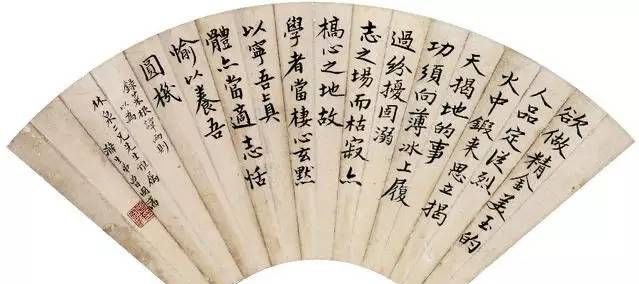 欲做精金美玉的
人品定從烈
火中鍛来思立揭
天揭地的事
功須向薄冰上履
過紛擾固溺
志之場而枯寂亦
槁心之地故
學者當棲心玄默
以寧吾真
體亦當適志恬
愉以養吾
圓機
錄菜根譚兩則
以為
林泉二兄先生雅
滌生弟曾國藩